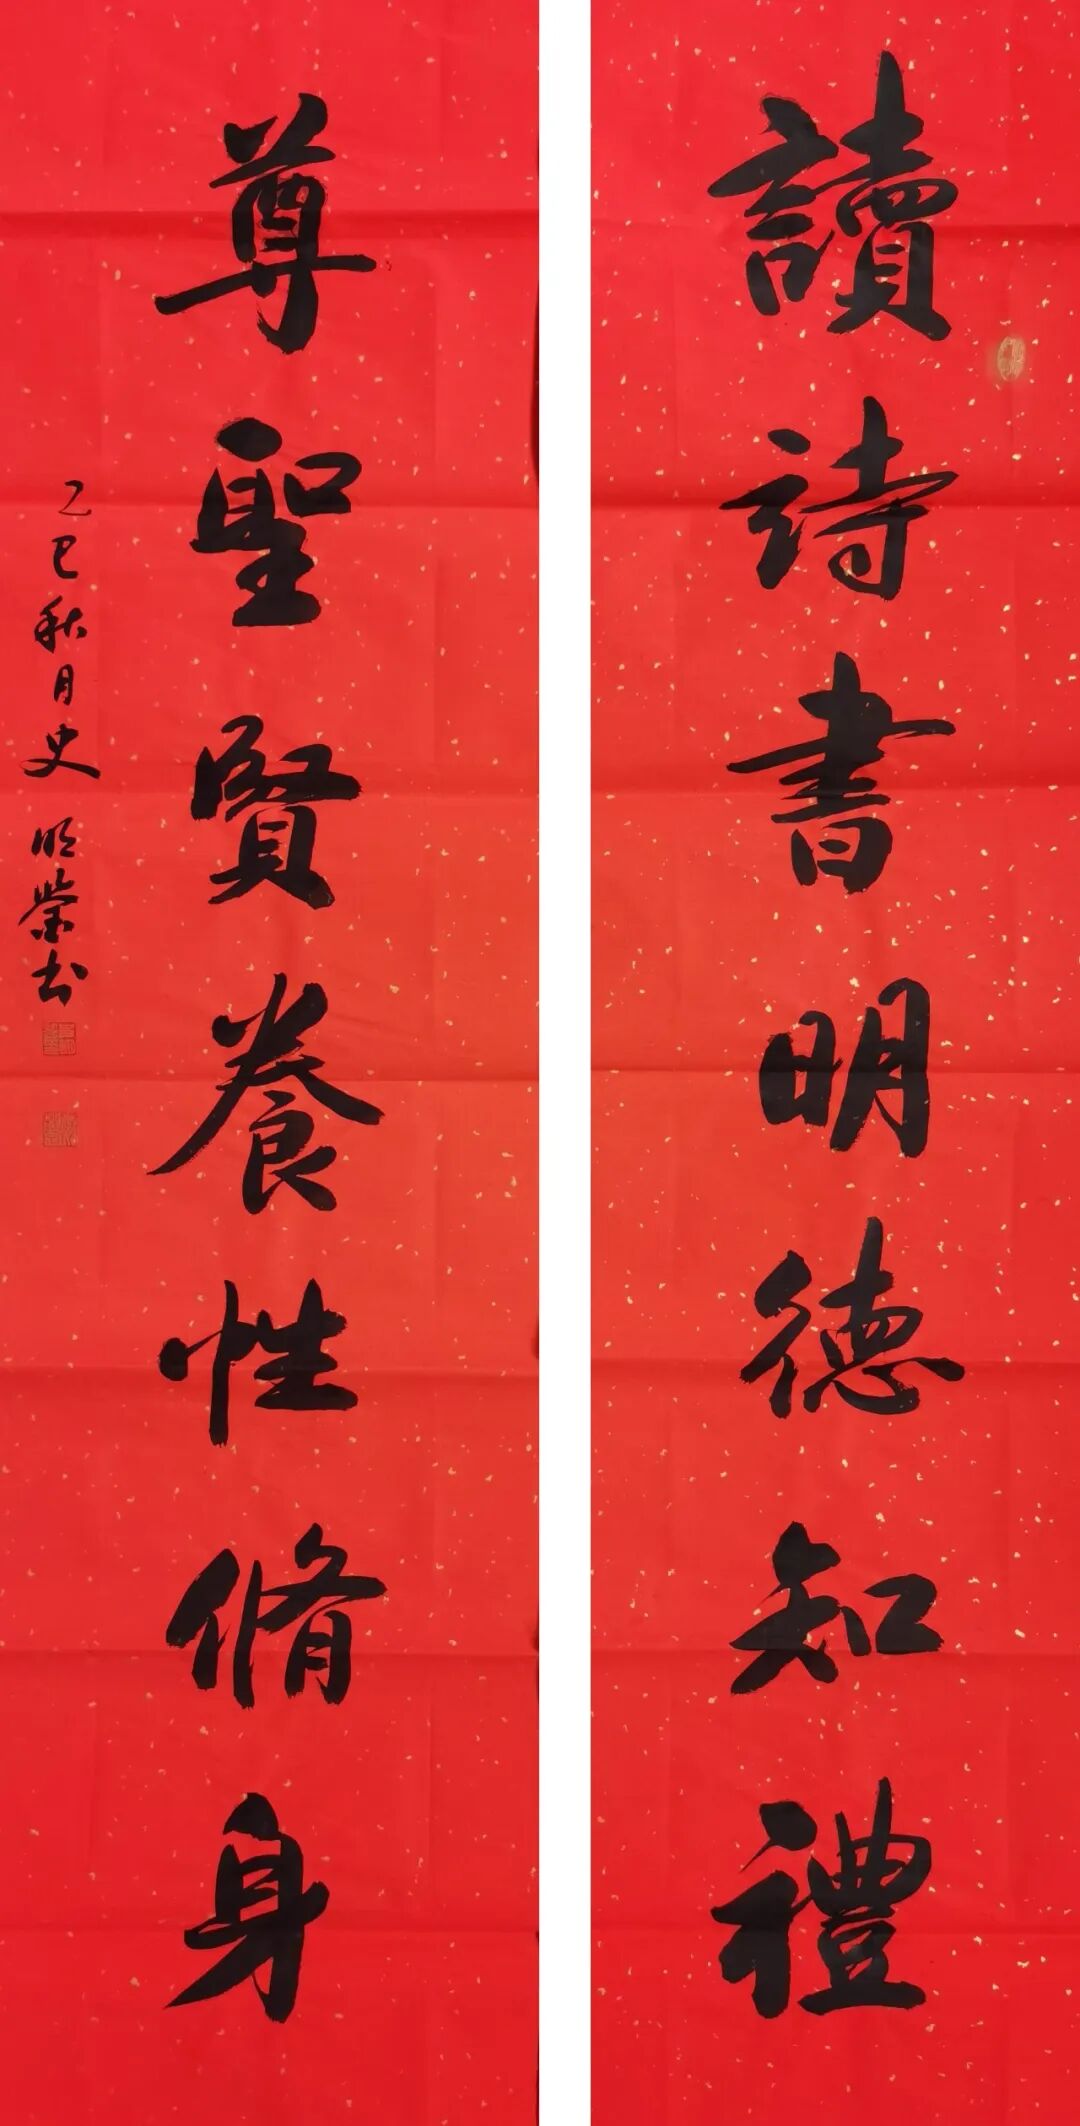 讀詩書明德知禮
尊聖賢養性脩身
乙巳秋月史明榮书